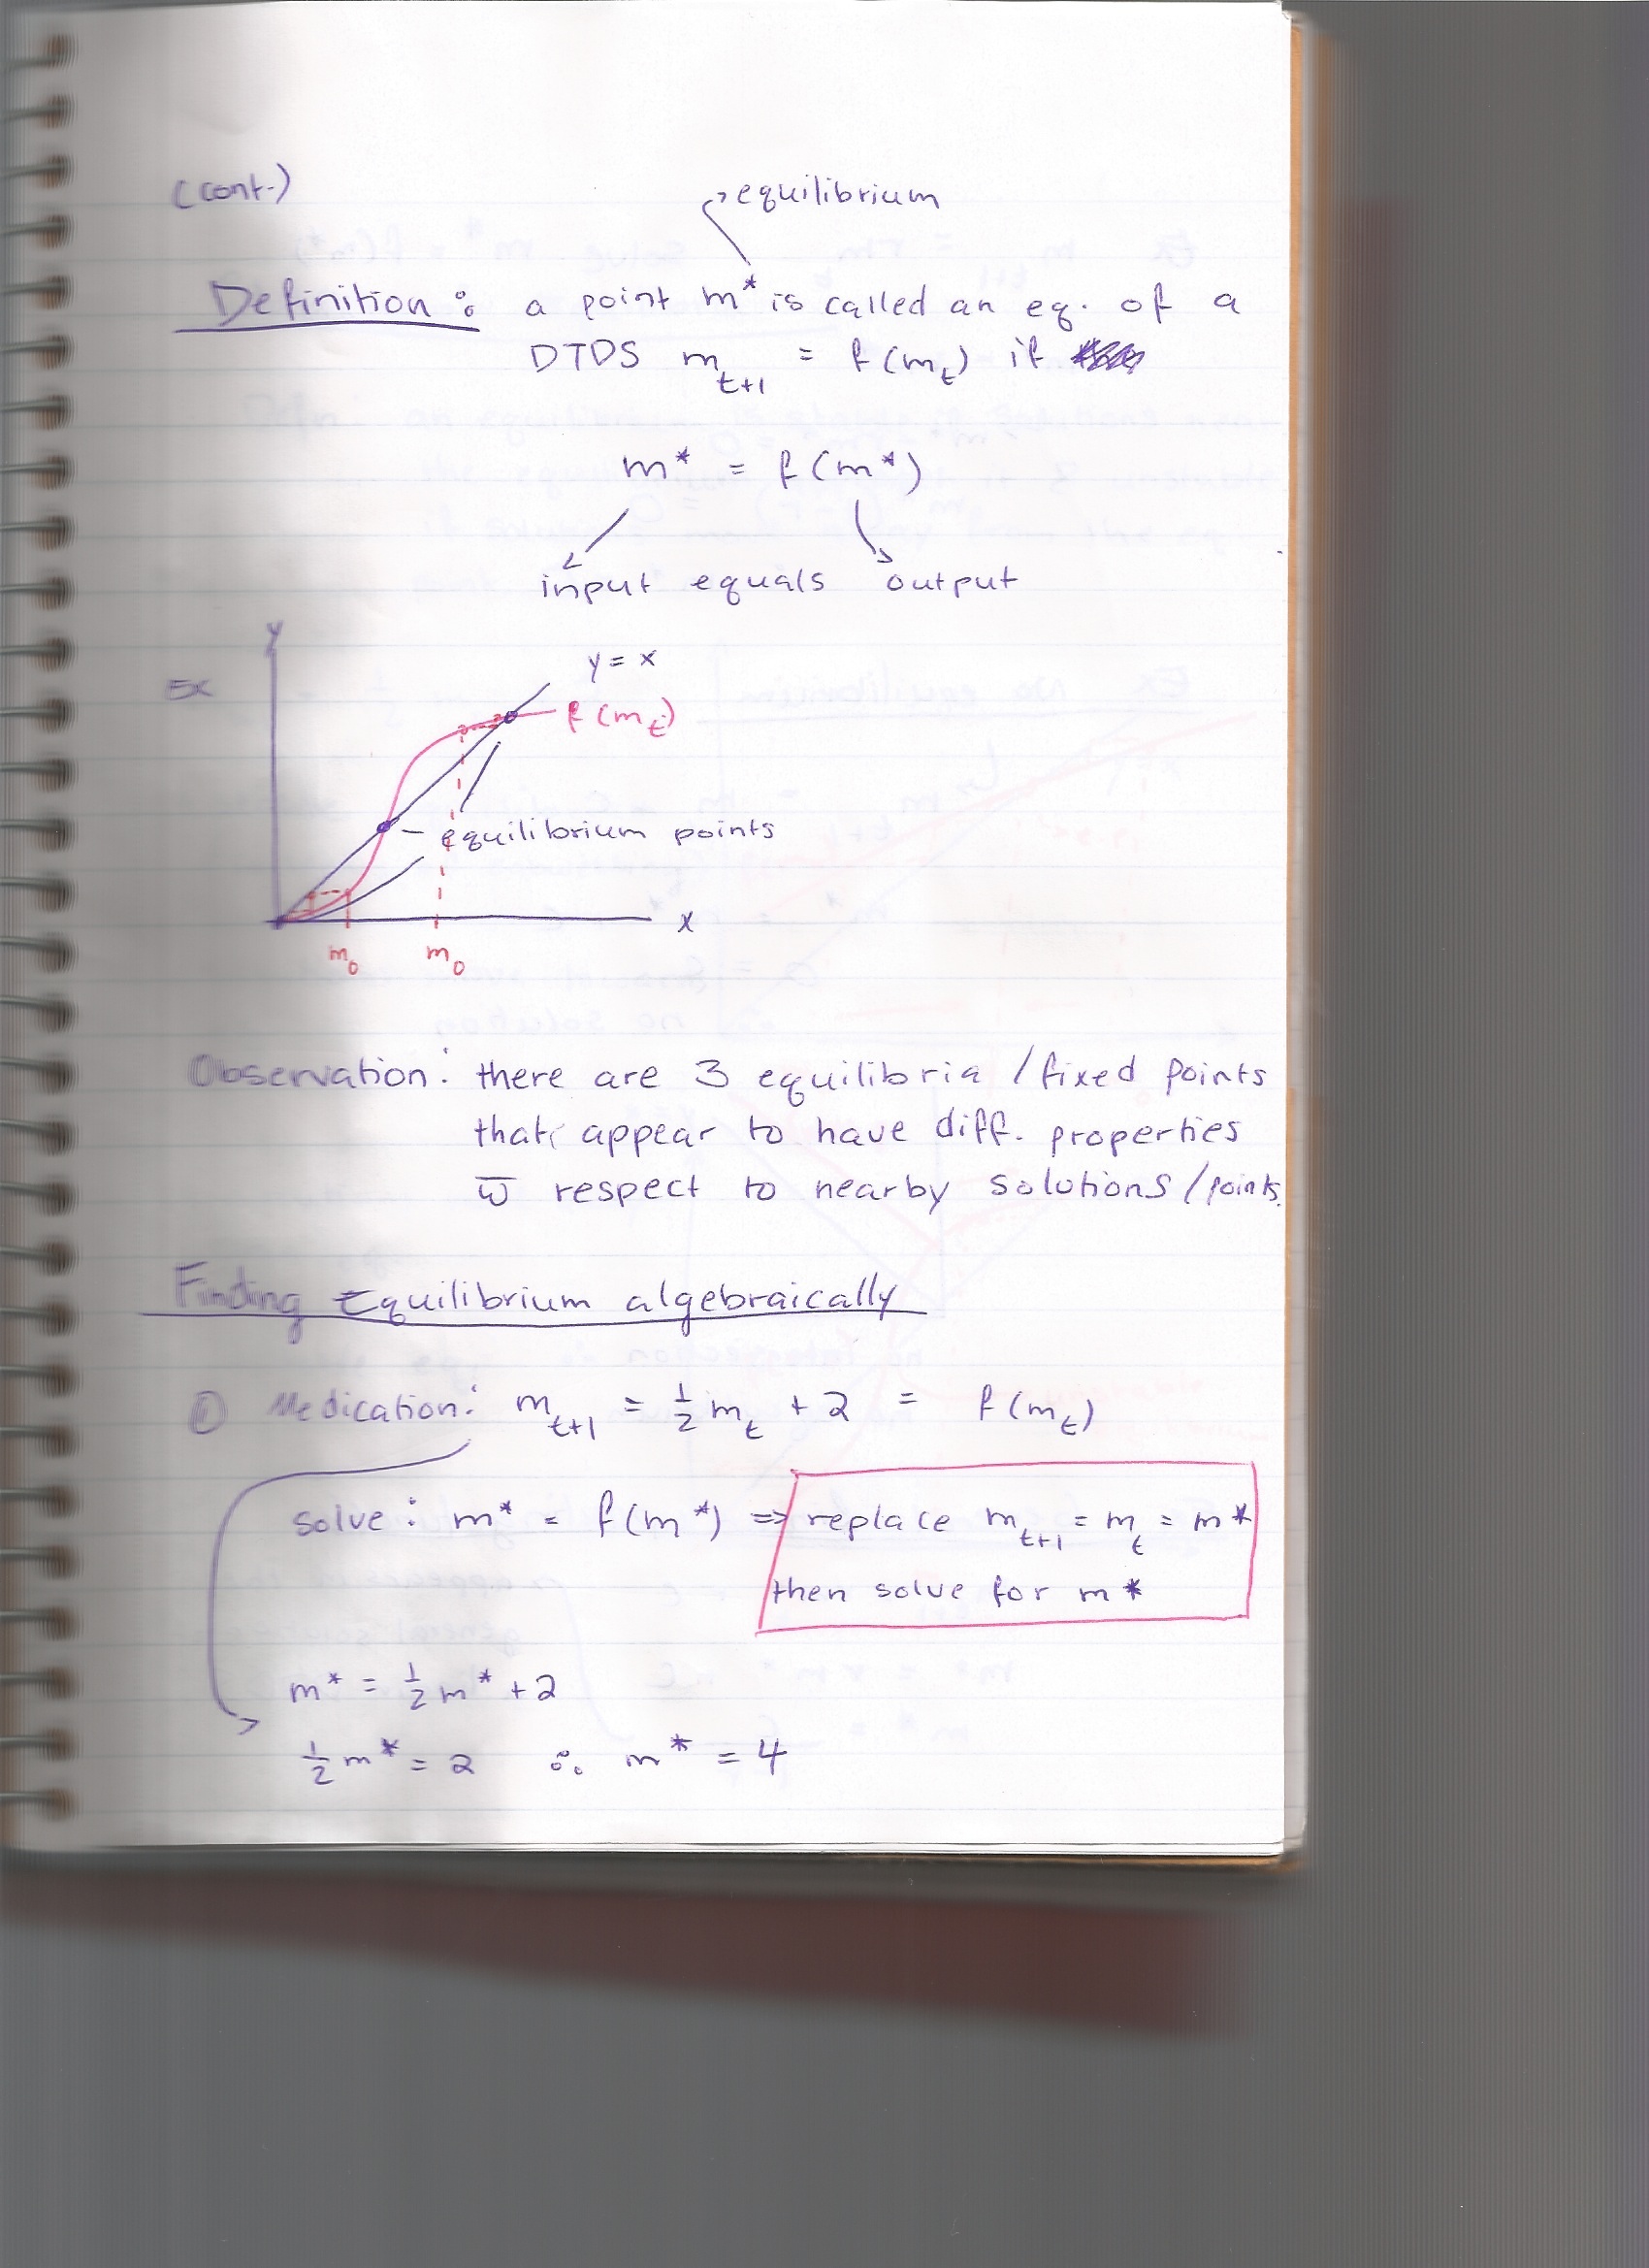 (cont.)
equilibrium
Definition: a point m* is called an eq. of a
DTDS m_{t+1} = f(m_t) if
m* = f(m*)
input equals output
Ex
y
y = x
f(m_t)
equilibrium points
x
m_0 m_0
Observation: there are 3 equilibria / fixed points
that appear to have diff. properties
w̅ respect to nearby solutions / points
Finding Equilibrium algebraically
① Medication: m_{t+1} = ½ m_t + 2 = f(m_t)
solve: m* = f(m*) ⇒ replace m_{t+1} = m_t = m*
then solve for m*
m* = ½ m* + 2
½ m* = 2 ∴ m* = 4